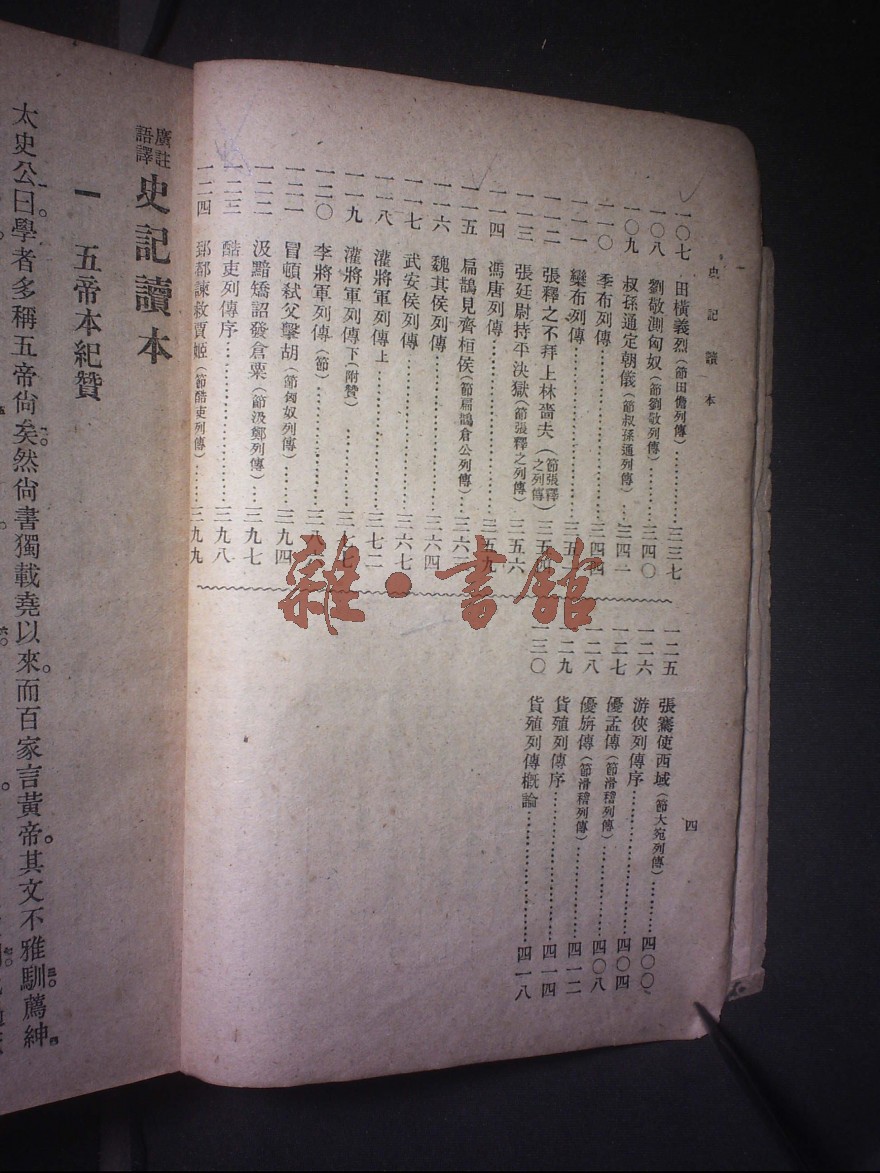 史記讀本
一〇七 田橫義烈(節田儋列傳)…………三三七
一〇八 劉敬測匈奴(節劉敬列傳)…………三四〇
一〇九 叔孫通定朝儀(節叔孫通列傳)…三四一
一一〇 季布列傳…………三四四
一一一 欒布列傳…………三五
一一二 張釋之不拜上林嗇夫(節張釋之列傳)三五
一一三 張廷尉持平決獄(節張釋之列傳)三五六
一一四 馮唐列傳…………三五九
一一五 扁鵲見齊桓侯(節扁鵲倉公列傳)…三六
一一六 魏其侯列傳…………三六四
一一七 武安侯列傳…………三六七
一一八 灌將軍列傳上…………三七二
一一九 灌將軍列傳下(附贊)…………三七七
一二〇 李將軍列傳(節)…………三八
一二一 冒頓弒父擊胡(節匈奴列傳)…………三九四
一二二 汲黯矯詔發倉粟(節汲鄭列傳)…三九七
一二三 酷吏列傳序…………三九八
一二四 郅都諫救賈姬(節酷吏列傳)……三九九
一二五 張騫使西域(節大宛列傳)…………四〇〇
一二六 游俠列傳序…………四〇四
一二七 優孟傳(節滑稽列傳)…………四〇八
一二八 優旃傳(節滑稽列傳)…………四一二
一二九 貨殖列傳序…………四一四
一三〇 貨殖列傳概論…………四一八
四
雜·書館
廣註語譯 史記讀本
一 五帝本紀贊
太史公曰學者多稱五帝尙矣然尙書獨載堯以來而百家言黃帝其文不雅馴薦紳